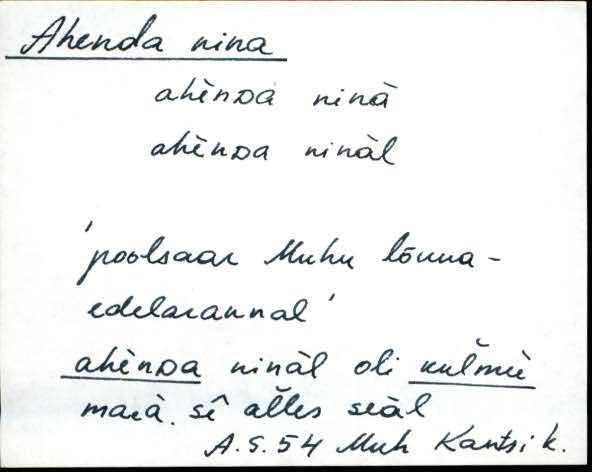 Ahenda nina
ahènᴅa ninà
ahènᴅa ninàl
'poolsaar Muhu lõuna-
edelarannal'
ahènᴅa ninàl oli
maià. sê al̆les siàl
A.S. 54 Muh Kantsi k.